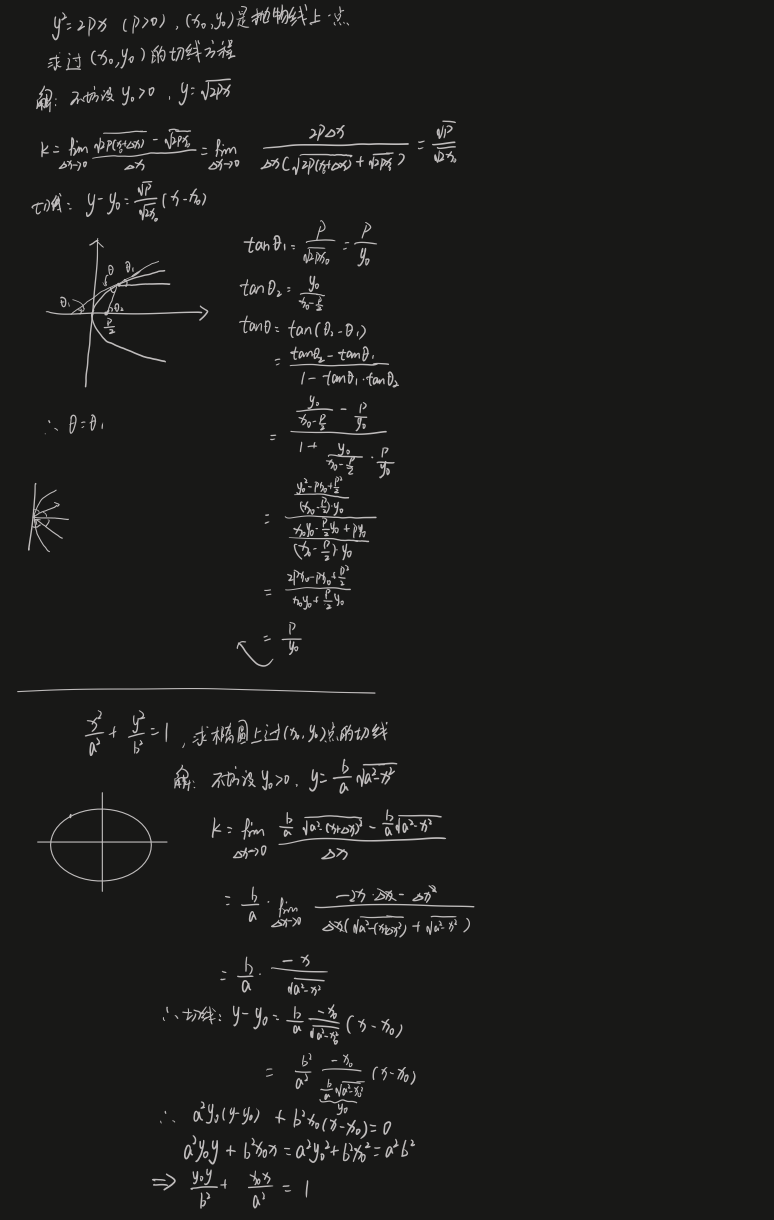 y²=2px (p>0), (x₀,y₀)是抛物线上一点
求过(x₀,y₀)的切线方程
解: 不妨设 y₀>0, y=√(2px)
k = lim_{Δx→0} (√(2p(x₀+Δx)) - √(2px₀))/Δx = lim_{Δx→0} 2pΔx/(Δx(√(2p(x₀+Δx)) + √(2px₀))) = √p/√(2x₀)
切线: y-y₀ = √p/√(2x₀) (x-x₀)
tanθ₁ = p/√(2px₀) = p/y₀
tanθ₂ = y₀/(x₀-p/2)
tanθ = tan(θ₂-θ₁)
= (tanθ₂ - tanθ₁)/(1 - tanθ₁·tanθ₂)
= (y₀/(x₀-p/2) - p/y₀)/(1 + y₀/(x₀-p/2) · p/y₀)
= ((y₀²-px₀+p²/2)/((x₀-p/2)·y₀))/((x₀y₀-p/2 y₀+py₀)/((x₀-p/2)·y₀))
= (2px₀-px₀+p²/2)/(x₀y₀+p/2 y₀)
= p/y₀
θ θ₁
θ₁ θ₂
p/2
∴ θ=θ₁
x²/a² + y²/b² = 1, 求椭圆上过(x₀,y₀)点的切线
解: 不妨设 y₀>0, y = b/a √(a²-x²)
k = lim_{Δx→0} (b/a √(a²-(x+Δx)²) - b/a √(a²-x²))/Δx
= b/a · lim_{Δx→0} (-2x·Δx - Δx²)/(Δx(√(a²-(x+Δx)²) + √(a²-x²)))
= b/a · -x/√(a²-x²)
∴ 切线: y-y₀ = b/a · -x₀/√(a²-x₀²) (x-x₀)
= b²/a² · -x₀/(b/a √(a²-x₀²)) (x-x₀)
y₀
∴ a²y₀(y-y₀) + b²x₀(x-x₀) = 0
a²y₀y + b²x₀x = a²y₀² + b²x₀² = a²b²
⇒ y₀y/b² + x₀x/a² = 1